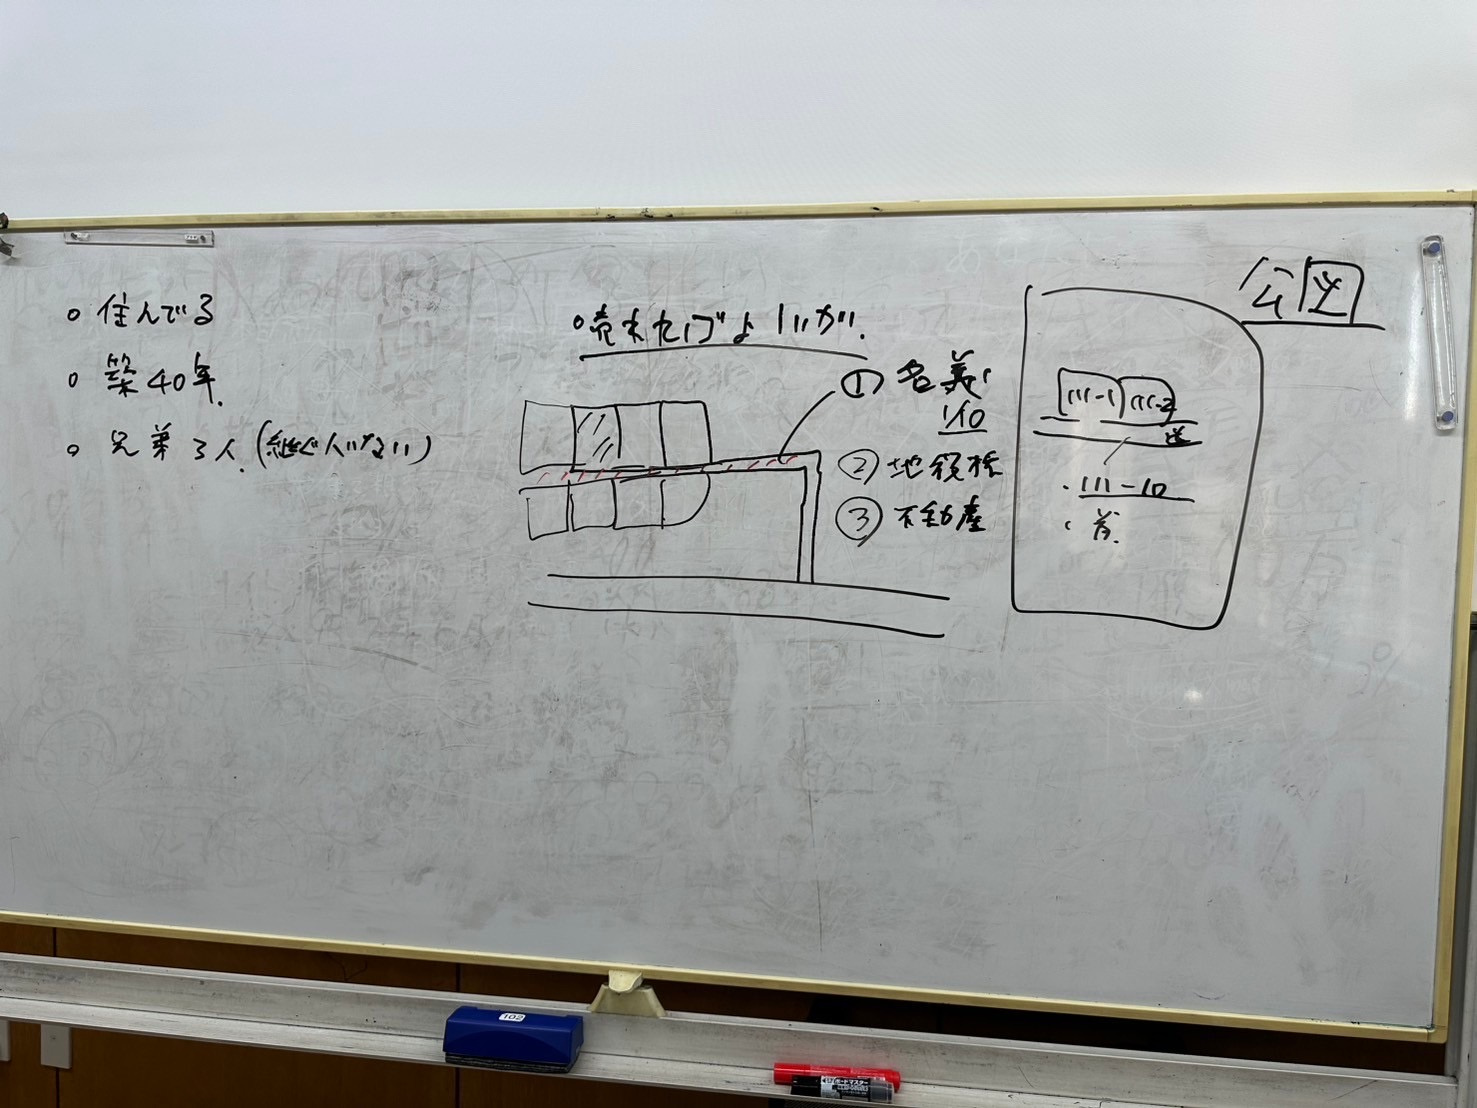 ○ 住んでる
○ 築40年.
○ 兄弟3人.(継ぐ人いない)
○売れればよいが.
① 名義
1/10
② 地役権
③ 不動産
公図
111-1 111-2
道
・111-10
・
102
ボードマスター